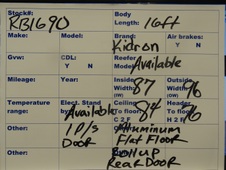 Stock#: RB1690 Body Length: 16ft
Make: Model: Brand: Kidron Air brakes: Y N
Gvw: CDL: Y N Reefer Model: Available
Mileage: Year: Inside Width (IW) 87 Outside Width (OW) 96
Temperature range: Available Elect. Stand by Ceiling To floor H 2 F 84 Header To floor 76
Other: 1 P/S Door Other: Aluminum Flat Floor
Other: Rollup Rear Door